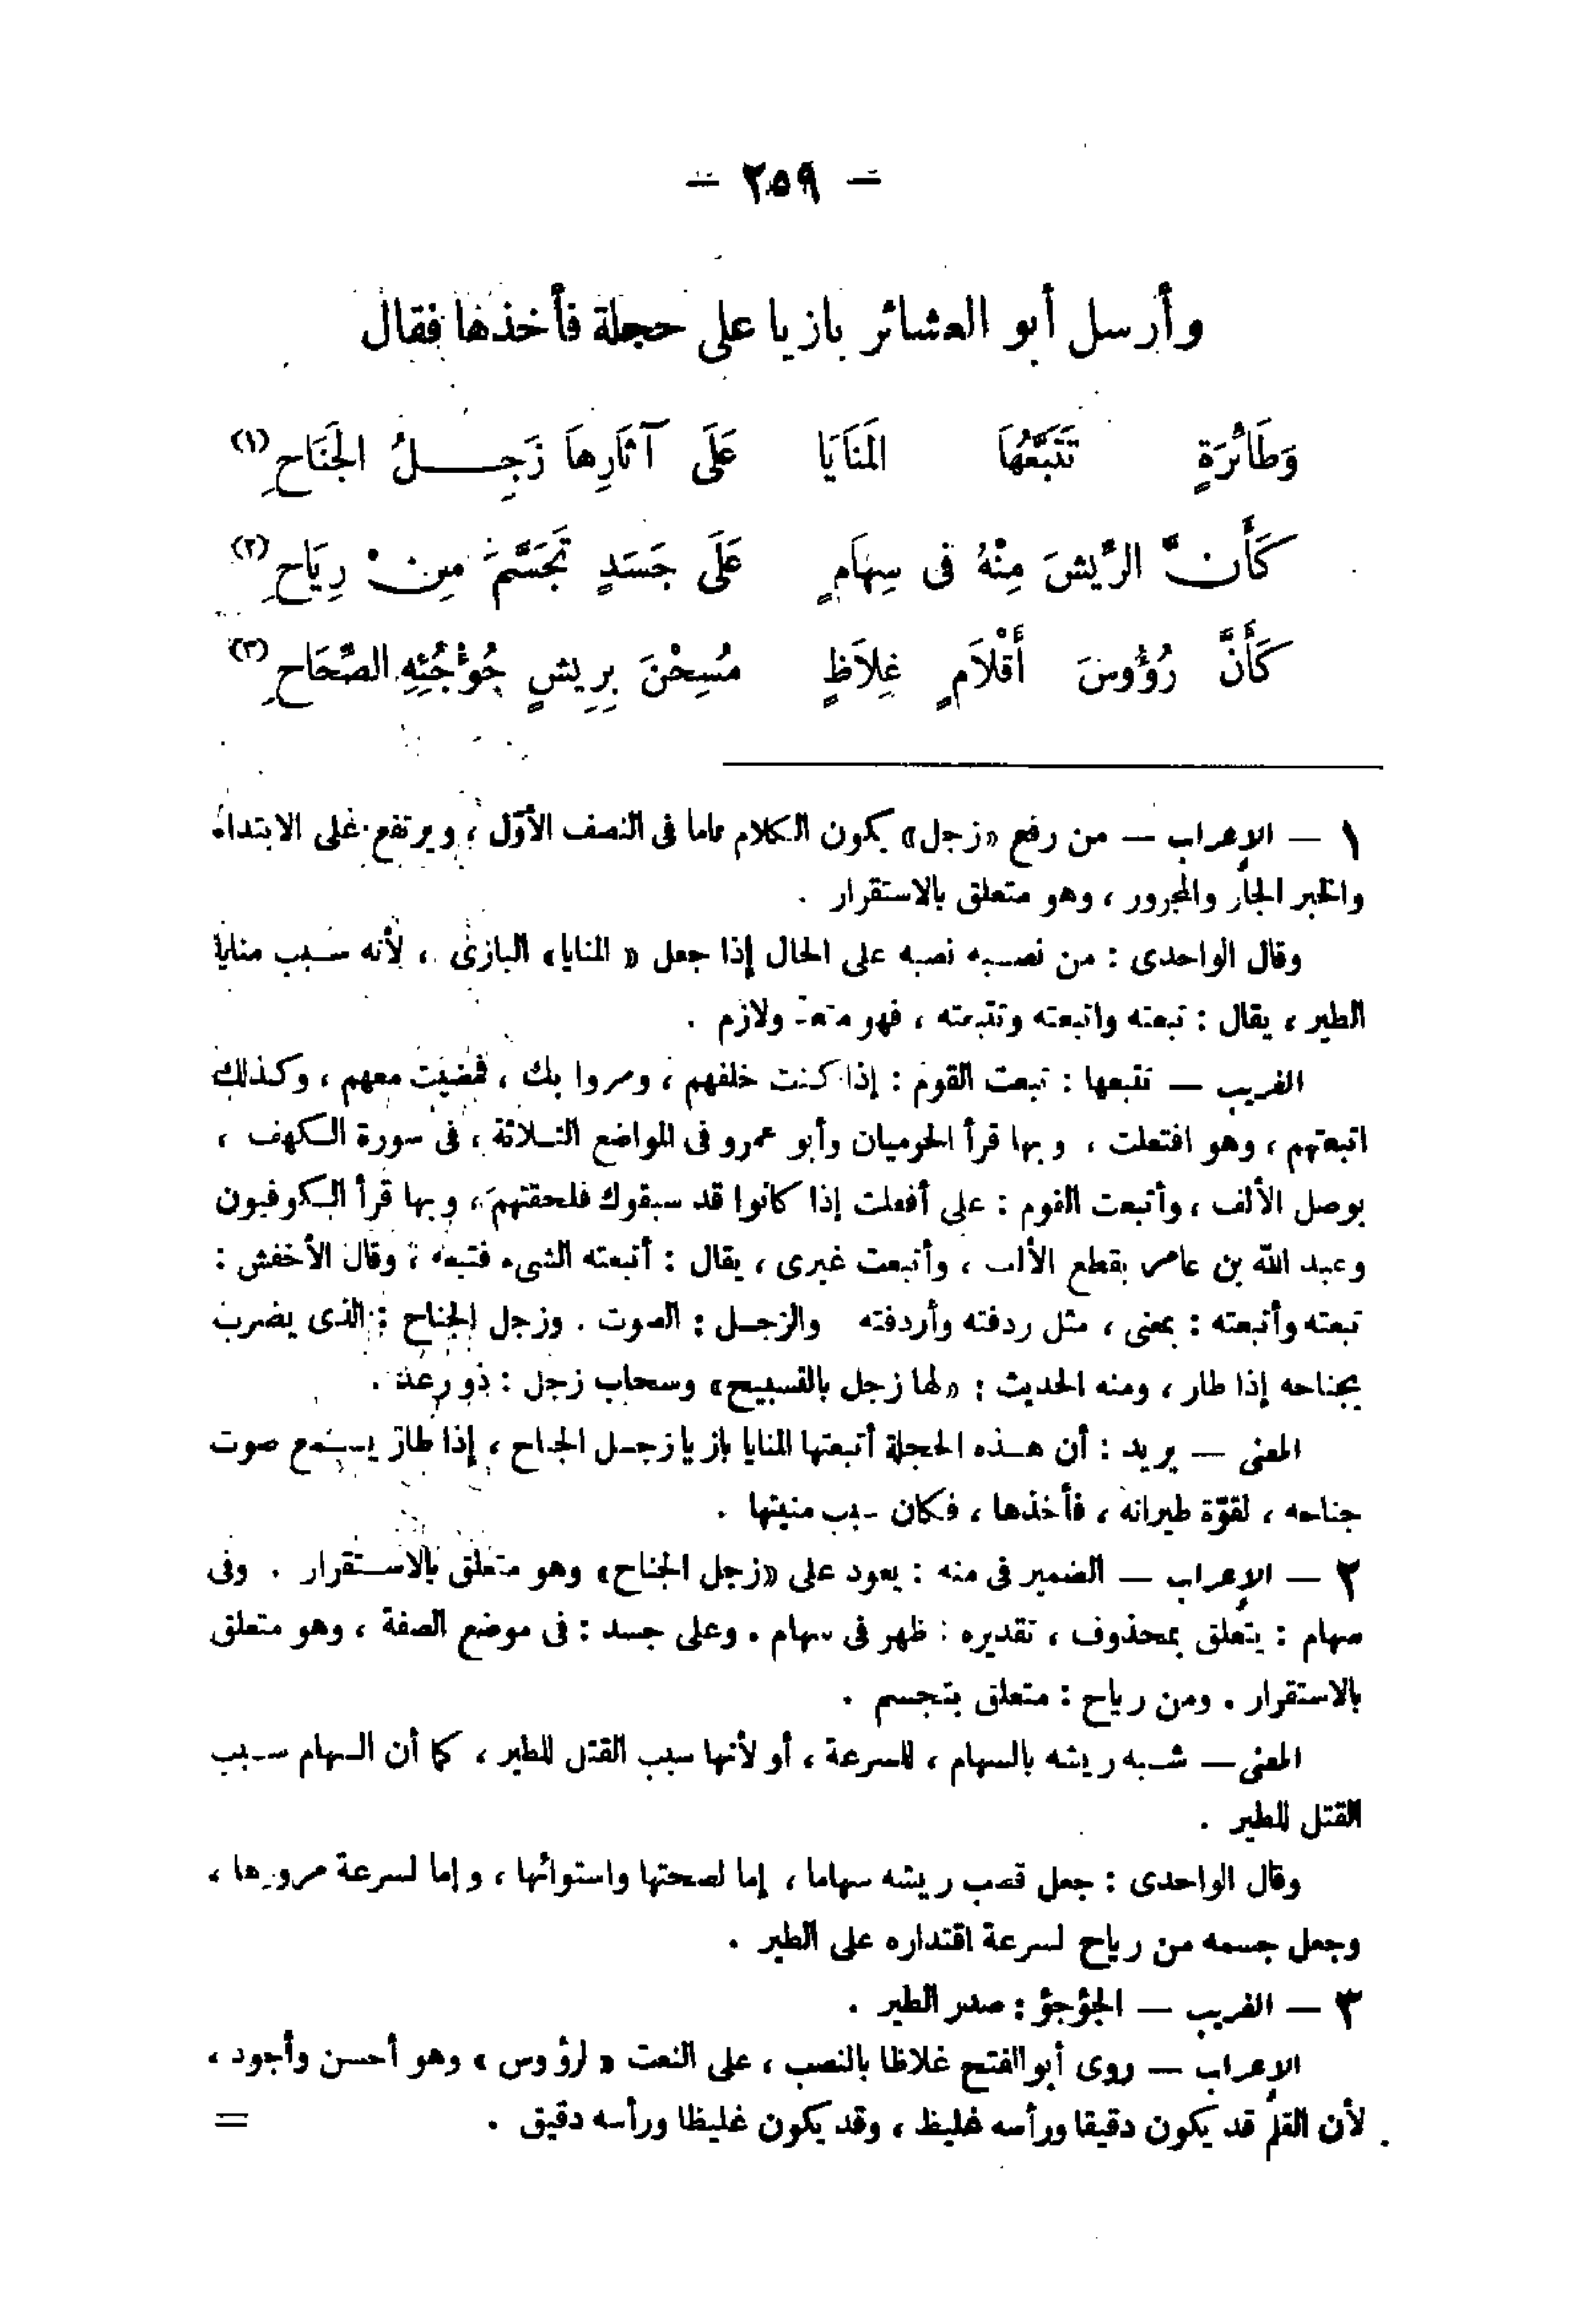 — ٢٥٩ —
وأرسل أبو العشائر بازيا على حجلة فأخذها فقال
وَطَائرَةٍ تَتَبَّعُهَا المَنَايَا عَلَى آثَارِهاَ زَجِـــلُ الجَنَاحِ (١)
كَأَنَّ الرِّيشَ مِنْهُ فى سِهَامٍ عَلَى جَسَدٍ تَجَسَّمَ مِنْ رِيَاحِ (٢)
كَأَنَّ رُؤُوسَ أَقْلاَمٍ غِلاَظٍ مُسِحْنَ بِرِيشِ جُوْجُئِهِ الصِّحَاحِ (٣)
١ — الإعراب — من رفع «زجل» يكون الكلام تماما فى النصف الأوّل ، ويرتفع على الابتداء
والخبر الجار والمجرور ، وهو متعلق بالاستقرار .
وقال الواحدى : من نصبه نصبه على الحال إذا جعل « المنايا» البازى ، لأنه سبب منايا
الطير ، يقال : تبعته واتبعته وتتبعته ، فهو متعد ولازم .
الغريب — تتبعها : تبعت القوم : إذا كنت خلفهم ، ومروا بك ، فمضيت معهم ، وكذلك
اتبعتهم ، وهو افتعلت ، وبها قرأ الحرميان وأبو عمرو فى المواضع الثلاثة ، فى سورة الكهف ،
بوصل الألف ، وأتبعت القوم : على أفعلت إذا كانوا قد سبقوك فلحقتهم ، وبها قرأ الكوفيون
وعبد الله بن عامر بقطع الألف ، وأتبعت غيرى ، يقال : أتبعته الشىء فتبعه ؛ وقال الأخفش :
تبعته وأتبعته : بمعنى ، مثل ردفته وأردفته والزجل : الصوت . وزجل الجناح : الذى يضرب
بجناحه إذا طار ، ومنه الحديث : «لها زجل بالتسبيح» وسحاب زجل : ذو رعد .
المعنى — يريد : أن هذه الحجلة أتبعتها المنايا بازيا زجل الجناح ، إذا طار يسمع صوت
جناحه ، لقوّة طيرانه ، فأخذها ، فكان سبب منيتها .
٢ — الإعراب — الضمير فى منه : يعود على «زجل الجناح» وهو متعلق بالاستقرار . وفى
سهام : يتعلق بمحذوف ، تقديره : ظهر فى سهام . وعلى جسد : فى موضع الصفة ، وهو متعلق
بالاستقرار . ومن رياح : متعلق بتجسم .
المعنى — شبه ريشه بالسهام ، للسرعة ، أو لأنها سبب القتل للطير ، كما أن السهام سبب
القتل للطير .
وقال الواحدى : جعل قصب ريشه سهاما ، إما لصحتها واستوائها ، وإما لسرعة مرورها ،
وجعل جسمه من رياح لسرعة اقتداره على الطير .
٣ — الغريب — الجؤجؤ : صدر الطير .
الإعراب — روى أبو الفتح غلاظا بالنصب ، على النعت « لرؤوس » وهو أحسن وأجود ،
لأن القلم قد يكون دقيقا ورأسه غليظ ، وقد يكون غليظا ورأسه دقيق . =